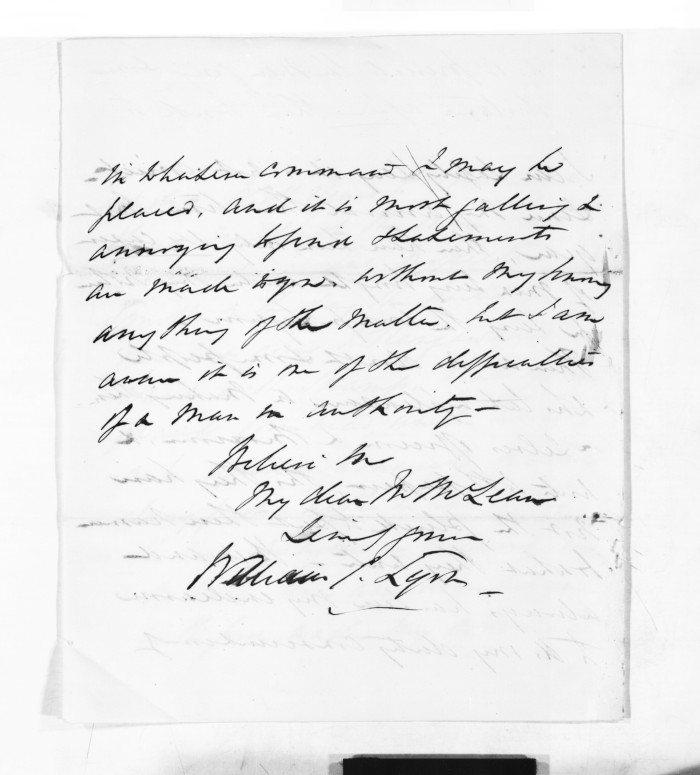 in whatever command I may be
placed, and it is most galling &
annoying to find statements
are made to you, without my knowing
anything of the matter. but I am
aware it is one of the difficulties
of a man in authority –
Believe me
My dear Mr McLean
Very yours
William